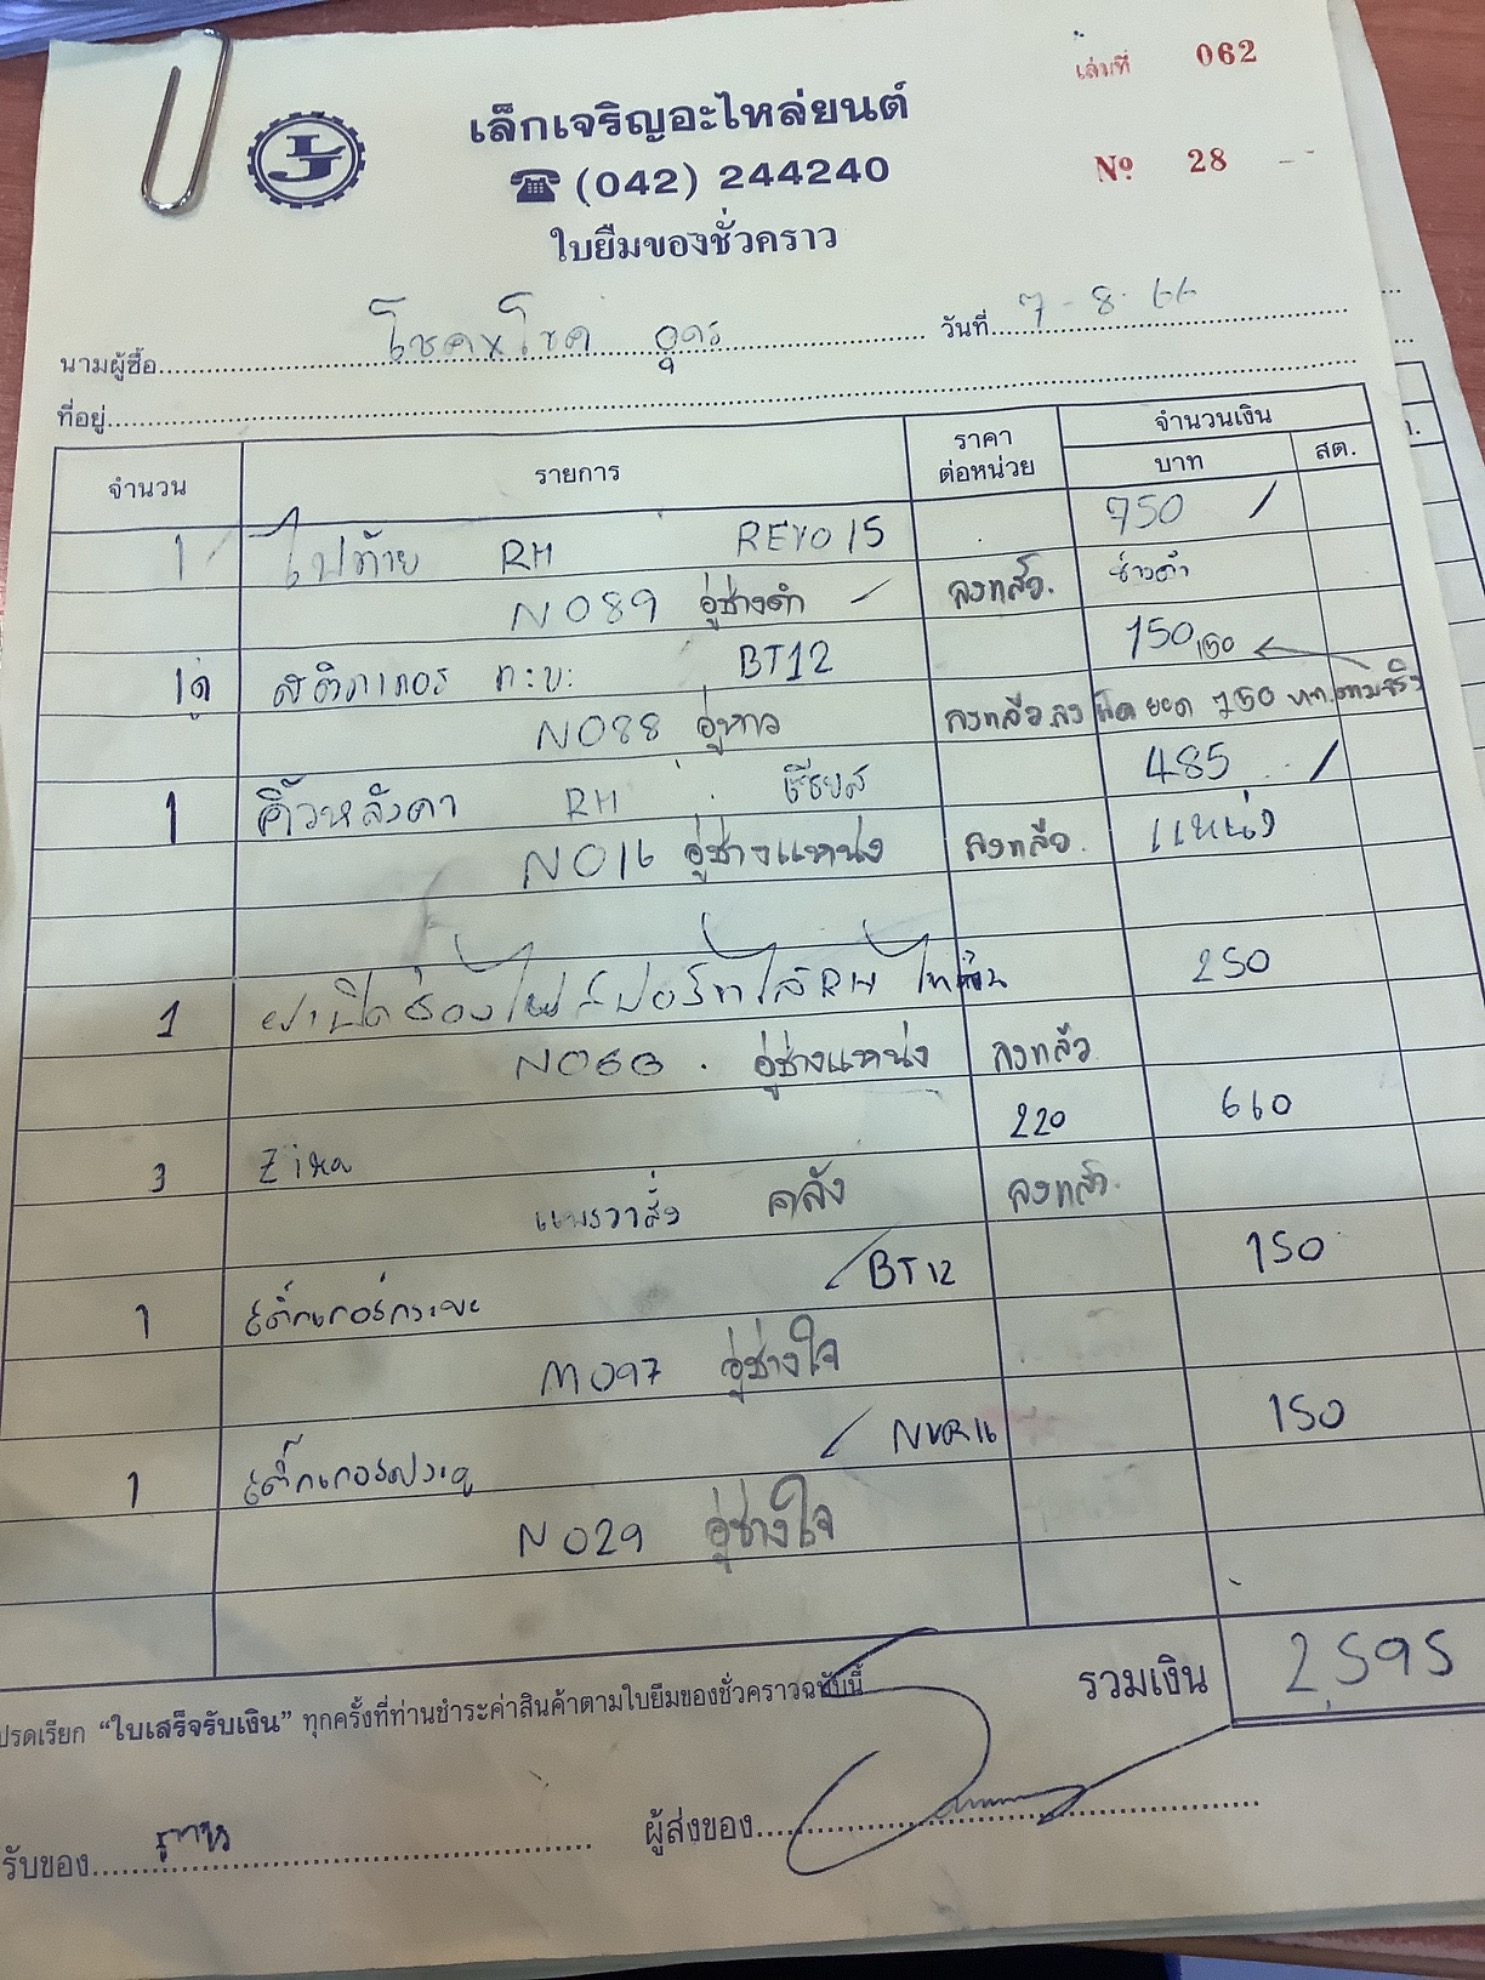 เล่มที่ 062
เล็กเจริญอะไหล่ยนต์
(042) 244240
Nº 28
ใบยืมของชั่วคราว
นามผู้ซื้อ โชคxโชค อุดร วันที่ 7-8-66
ที่อยู่
จำนวน รายการ ราคาต่อหน่วย จำนวนเงิน
บาท สต.
1 ไฟท้าย RH REVO 15 750
N089 อู่ช่างดำ ลงแล้ว. ช่างดำ
1 สติกเกอร์ BT12 150 150
N088 อู่หาว ลงแล้ว ลงผิด ยอด 750 ตามจริง
1 คิ้วหลังคา RH 485
N016 อู่ช่างแหน่ง ลงแล้ว. แหน่ง
1 ฝาปิดช่องไฟสปอร์ทไลRH 250
N063 อู่ช่างแหน่ง ลงแล้ว
3 220 660
แพรวาสั่ง คลัง ลงแล้ว.
1 สติ๊กเกอร์กระบะ BT12 150
M097 อู่ช่างใจ
1 สติ๊กเกอร์ประตู NVR16 150
N029 อู่ช่างใจ
รวมเงิน 2,595
ปรดเรียก “ใบเสร็จรับเงิน” ทุกครั้งที่ท่านชำระค่าสินค้าตามใบยืมของชั่วคราวฉบับนี้
รับของ ผู้ส่งของ